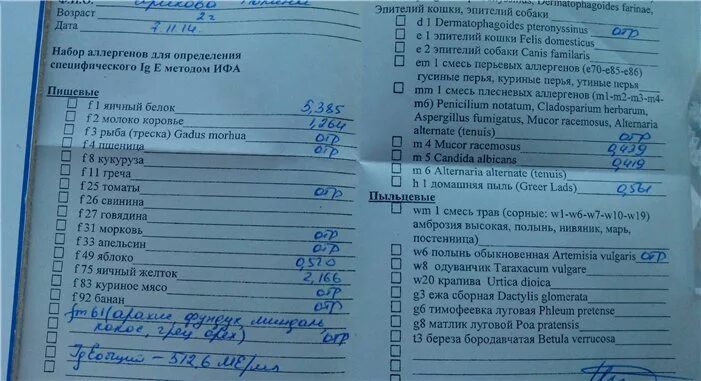 Ф.И.О.
Возраст 2 г
Дата 7.11.14
Набор аллергенов для определения
специфического Ig E методом ИФА
Пищевые
f 1 яичный белок 5,385
f 2 молоко коровье 1,264
f 3 рыба (треска) Gadus morhua отр
f 4 пшеница отр
f 8 кукуруза
f 11 греча
f 25 томаты отр
f 26 свинина
f 27 говядина
f 31 морковь отр
f 33 апельсин отр
f 49 яблоко 0,510
f 75 яичный желток 2,166
f 83 куриное мясо отр
f 92 банан отр
fm 61 (арахис фундук, миндаль,
кокос, грец орех) отр
Ig E общий – 512,6 МЕ/мл
Dermatophagoides farinae,
Эпителий кошки, эпителий собаки
d 1 Dermatophagoides pteronyssinus отр
e 1 эпителий кошки Felis domesticus
e 2 эпителий собаки Canis familaris
em 1 смесь перьевых аллергенов (e70-e85-e86)
гусиные перья, куриные перья, утиные перья
mm 1 смесь плесневых аллергенов (m1-m2-m3-m4-
m6) Penicilium notatum, Cladosporium herbarum,
Aspergillus fumigatus, Mucor racemosus, Alternaria
alternate (tenuis) отр
m 4 Mucor racemosus 0,439
m 5 Candida albicans 0,419
m 6 Alternaria alternate (tenuis)
h 1 домашняя пыль (Greer Lads) 0,561
Пыльцевые
wm 1 смесь трав (сорные: w1-w6-w7-w10-w19)
амброзия высокая, полынь, нивяник, марь,
постенница)
w6 полынь обыкновенная Artemisia vulgaris отр
w8 одуванчик Taraxacum vulgare
w20 крапива Urtica dioica
g3 ежа сборная Dactylis glomerata
g6 тимофеевка луговая Phleum pretense
g8 матлик луговой Poa pratensis
t3 береза бородавчатая Betula verrucosa